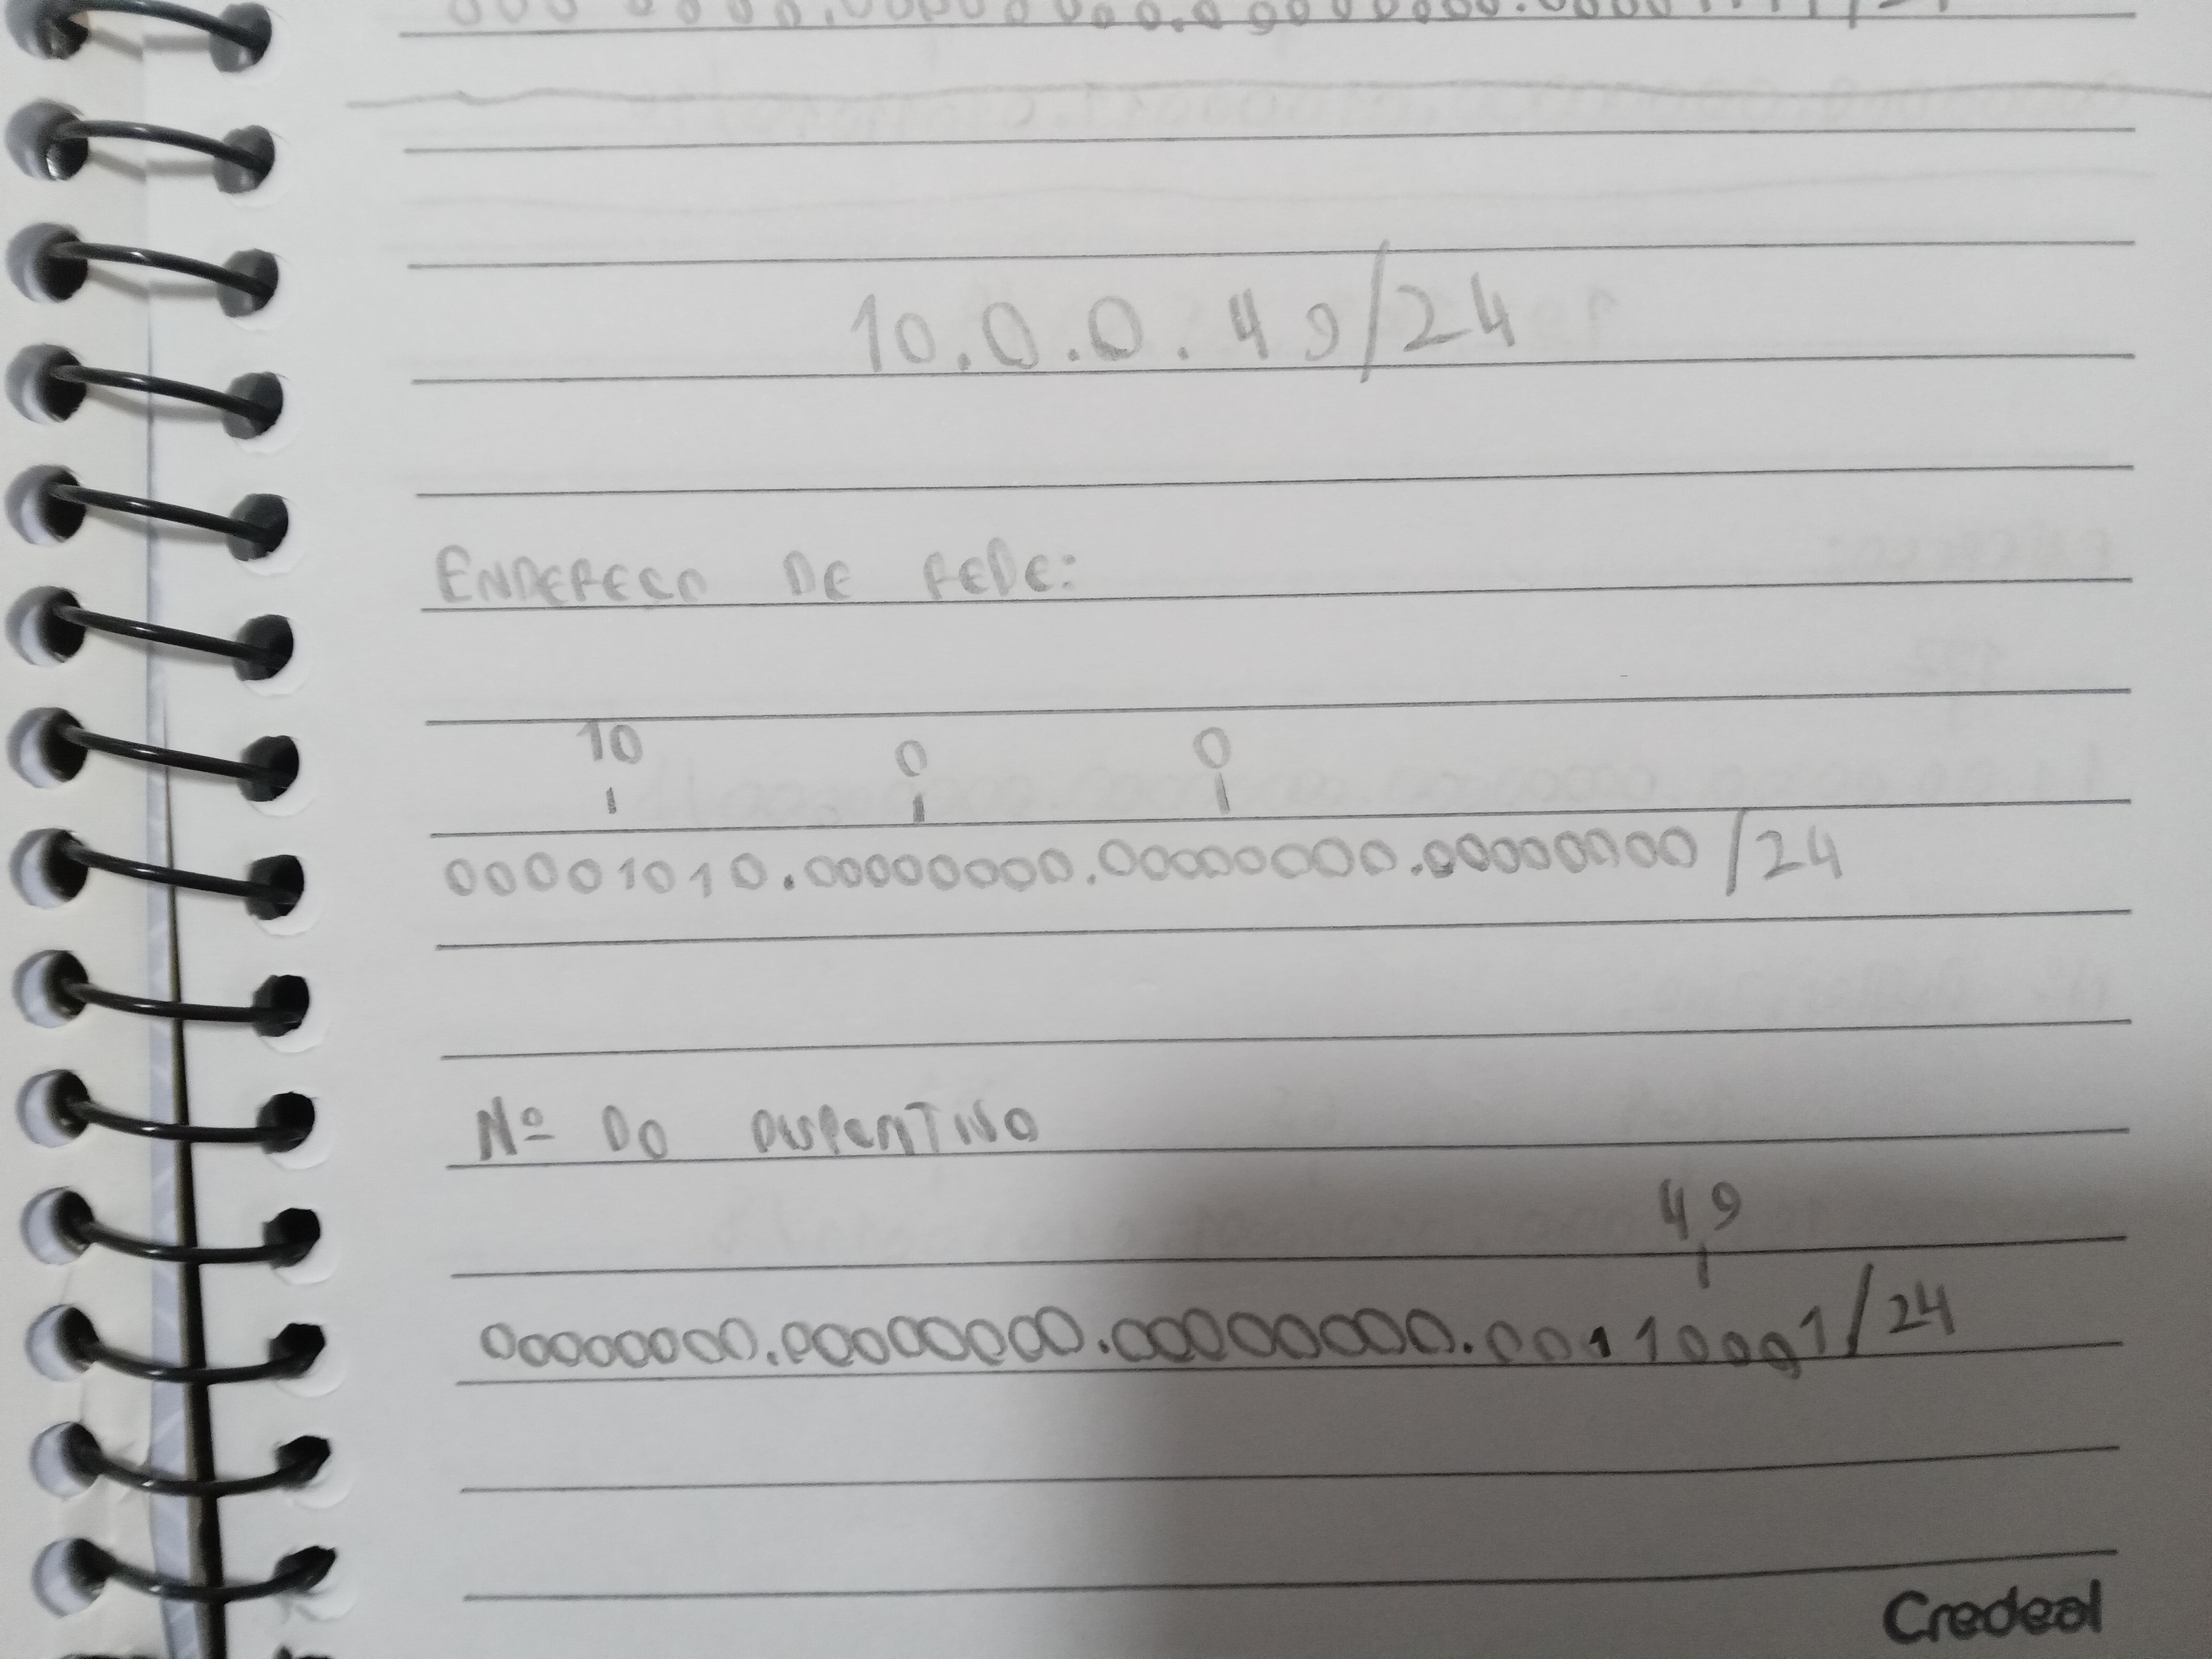 10.0.0.49/24
ENDEREÇO DE REDE:
10 0 0
00001010.00000000.00000000.00000000/24
Nº DO DISPOSITIVO
49
00000000.00000000.00000000.00110001/24
Credeal